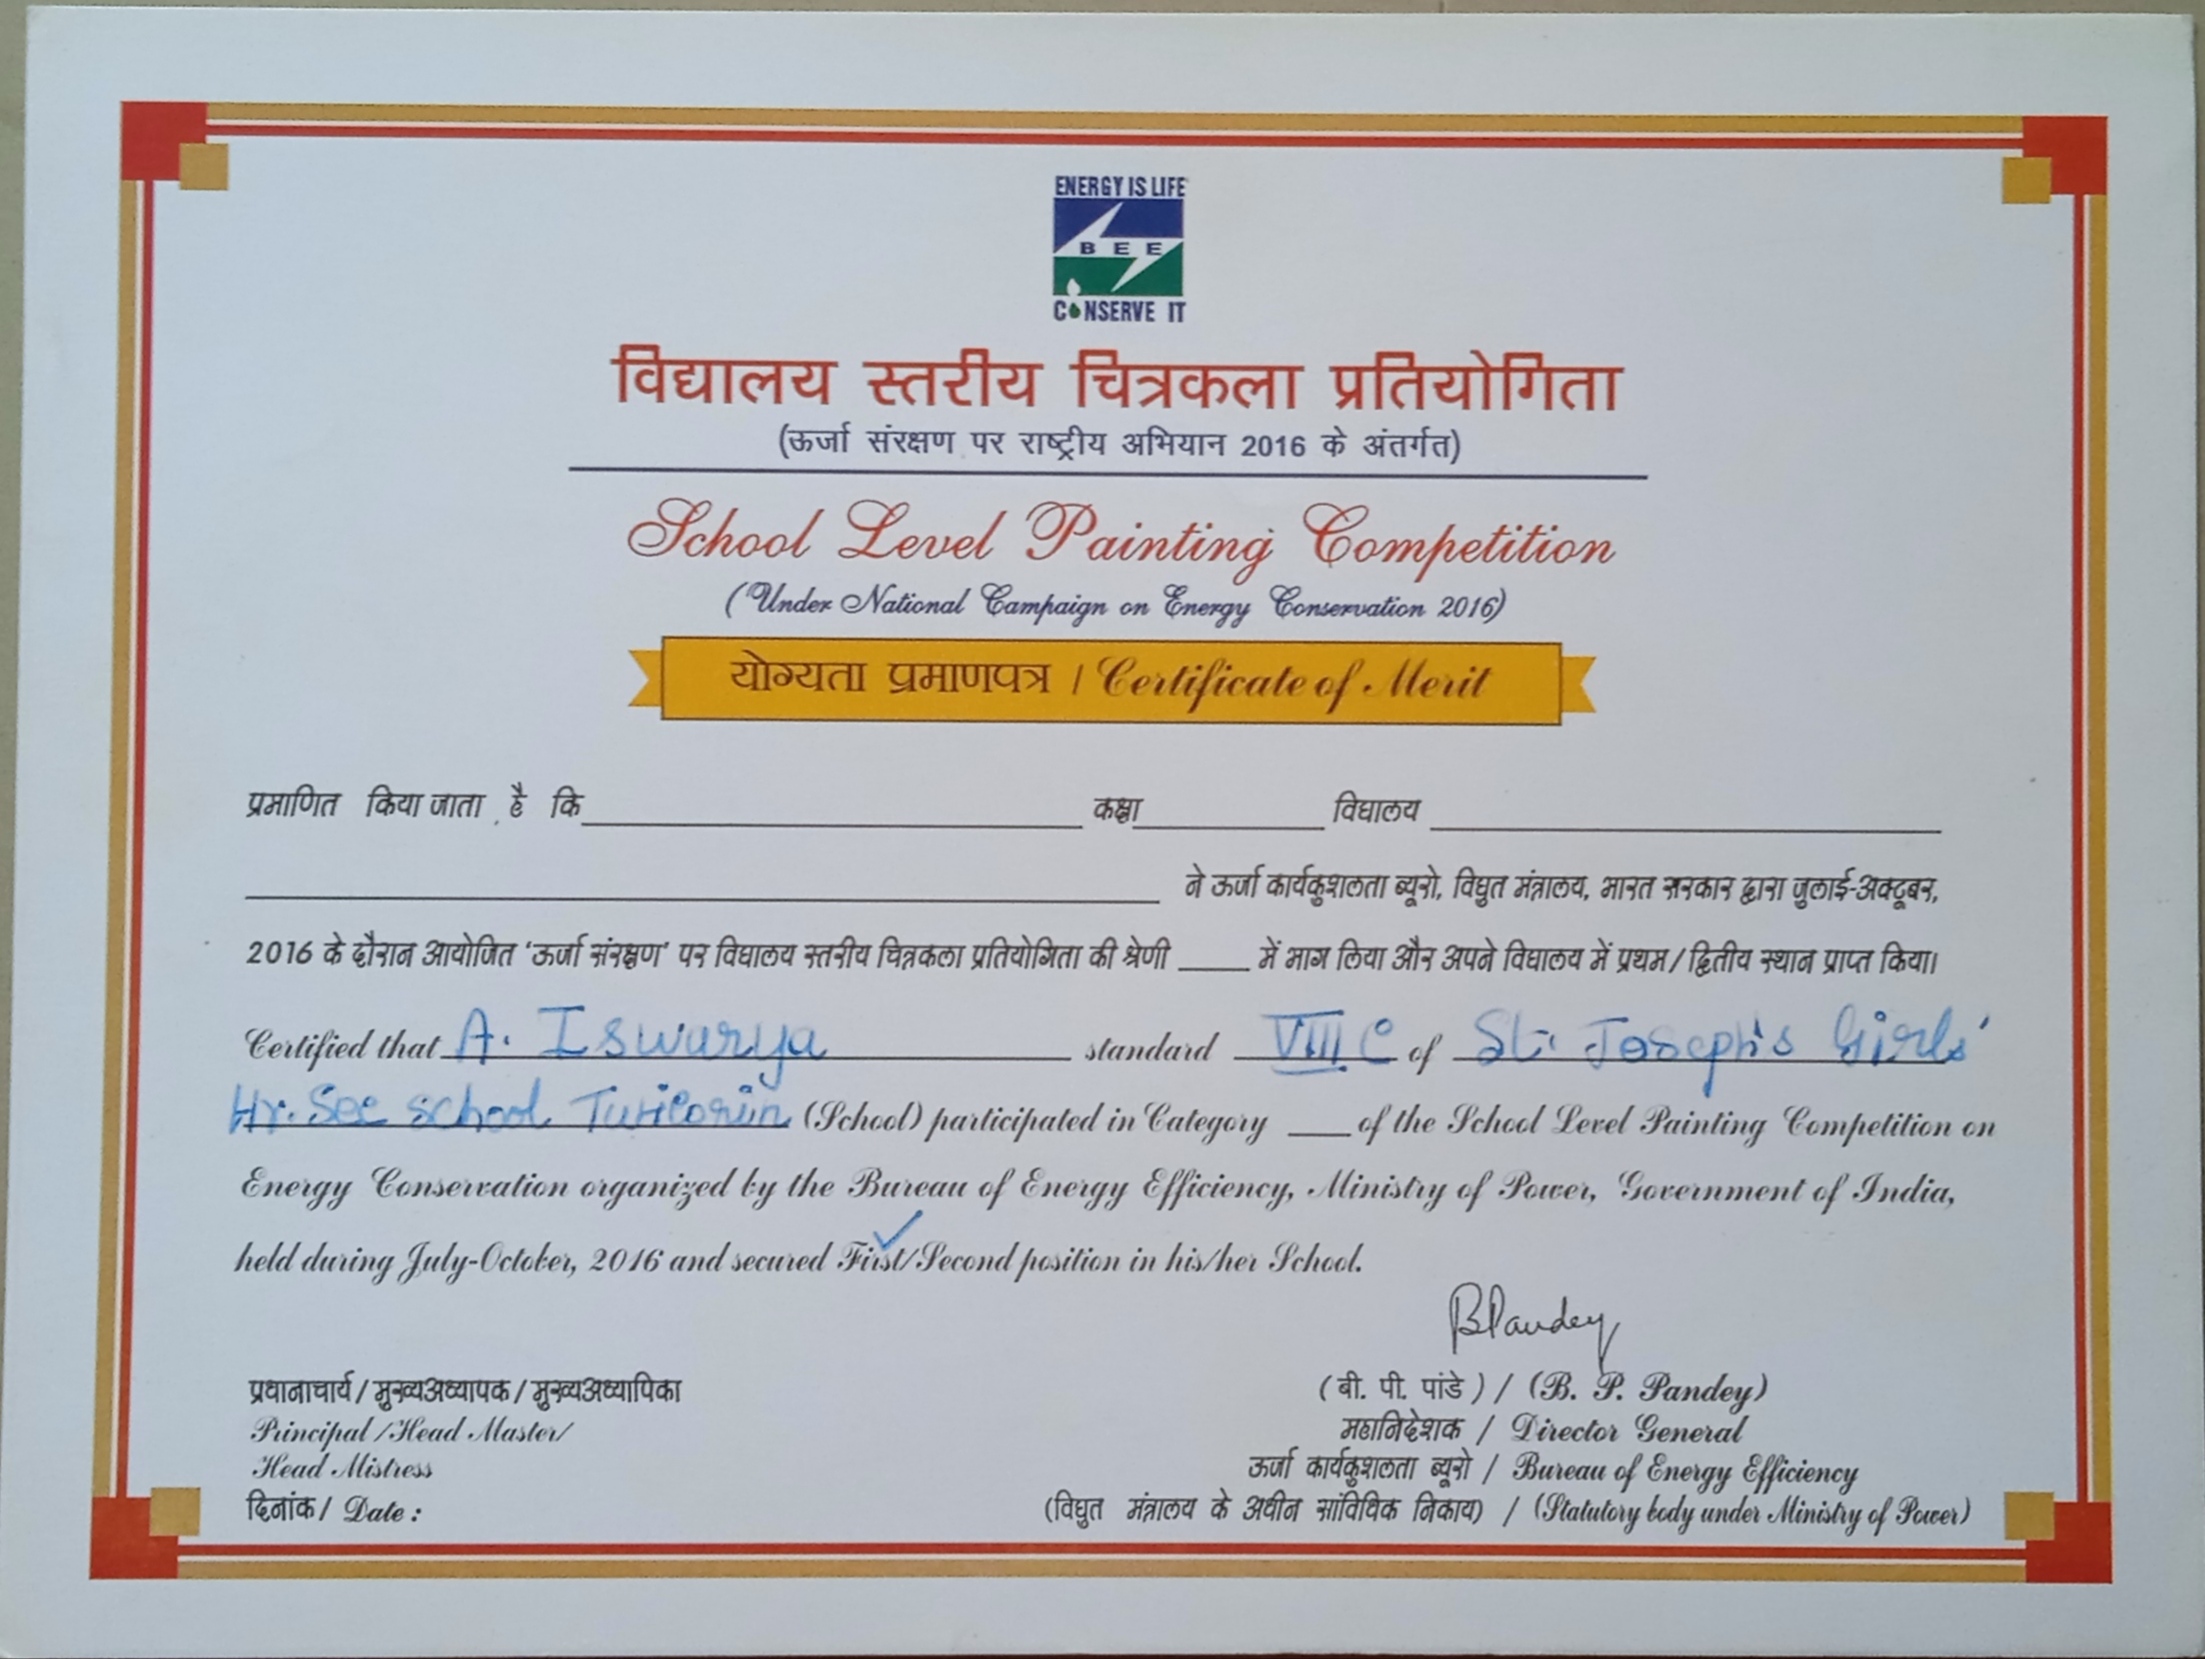 ENERGY IS LIFE
BEE
CONSERVE IT
विद्यालय स्तरीय चित्रकला प्रतियोगिता
(ऊर्जा संरक्षण पर राष्ट्रीय अभियान 2016 के अंतर्गत)
School Level Painting Competition
(Under National Campaign on Energy Conservation 2016)
योग्यता प्रमाणपत्र / Certificate of Merit
प्रमाणित किया जाता है कि कक्षा विद्यालय
ने ऊर्जा कार्यकुशलता ब्यूरो, विद्युत मंत्रालय, भारत सरकार द्वारा जुलाई-अक्टूबर,
2016 के दौरान आयोजित 'ऊर्जा संरक्षण' पर विद्यालय स्तरीय चित्रकला प्रतियोगिता की श्रेणी ____ में भाग लिया और अपने विद्यालय में प्रथम/द्वितीय स्थान प्राप्त किया।
Certified that A. Iswarya standard VIII C of St. Joseph's Girls'
Hr. Sec School Tuticorin (School) participated in Category ____ of the School Level Painting Competition on
Energy Conservation organized by the Bureau of Energy Efficiency, Ministry of Power, Government of India,
held during July-October, 2016 and secured First/Second position in his/her School.
BPandey
प्रधानाचार्य/मुख्यअध्यापक/मुख्यअध्यापिका
Principal/Head Master/
Head Mistress
दिनांक/ Date :
(बी. पी. पांडे) / (B. P. Pandey)
महानिदेशक / Director General
ऊर्जा कार्यकुशलता ब्यूरो / Bureau of Energy Efficiency
(विद्युत मंत्रालय के अधीन सांविधिक निकाय) / (Statutory body under Ministry of Power)